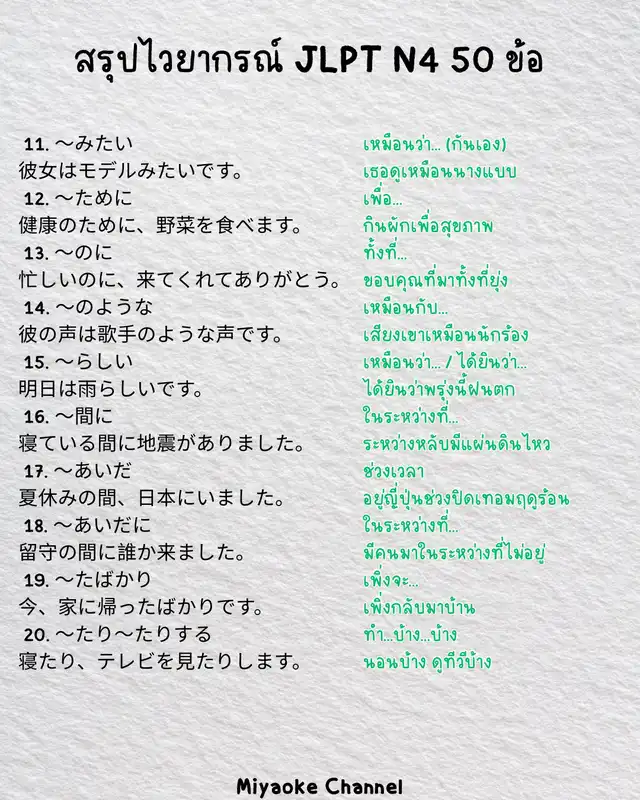 สรุปไวยากรณ์ JLPT N4 50 ข้อ
11. ～みたい เหมือนว่า... (กันเอง)
彼女はモデルみたいです。 เธอดูเหมือนนางแบบ
12. ～ために เพื่อ...
健康のために、野菜を食べます。 กินผักเพื่อสุขภาพ
13. ～のに ทั้งที่...
忙しいのに、来てくれてありがとう。 ขอบคุณที่มาทั้งที่ยุ่ง
14. ～のような เหมือนกับ...
彼の声は歌手のような声です。 เสียงเขาเหมือนนักร้อง
15. ～らしい เหมือนว่า... / ได้ยินว่า...
明日は雨らしいです。 ได้ยินว่าพรุ่งนี้ฝนตก
16. ～間に ในระหว่างที่...
寝ている間に地震がありました。 ระหว่างหลับมีแผ่นดินไหว
17. ～あいだ ช่วงเวลา
夏休みの間、日本にいました。 อยู่ญี่ปุ่นช่วงปิดเทอมฤดูร้อน
18. ～あいだに ในระหว่างที่...
留守の間に誰か来ました。 มีคนมาในระหว่างที่ไม่อยู่
19. ～たばかり เพิ่งจะ...
今、家に帰ったばかりです。 เพิ่งกลับมาบ้าน
20. ～たり～たりする ทำ...บ้าง...บ้าง
寝たり、テレビを見たりします。 นอนบ้าง ดูทีวีบ้าง
Miyaoke Channel